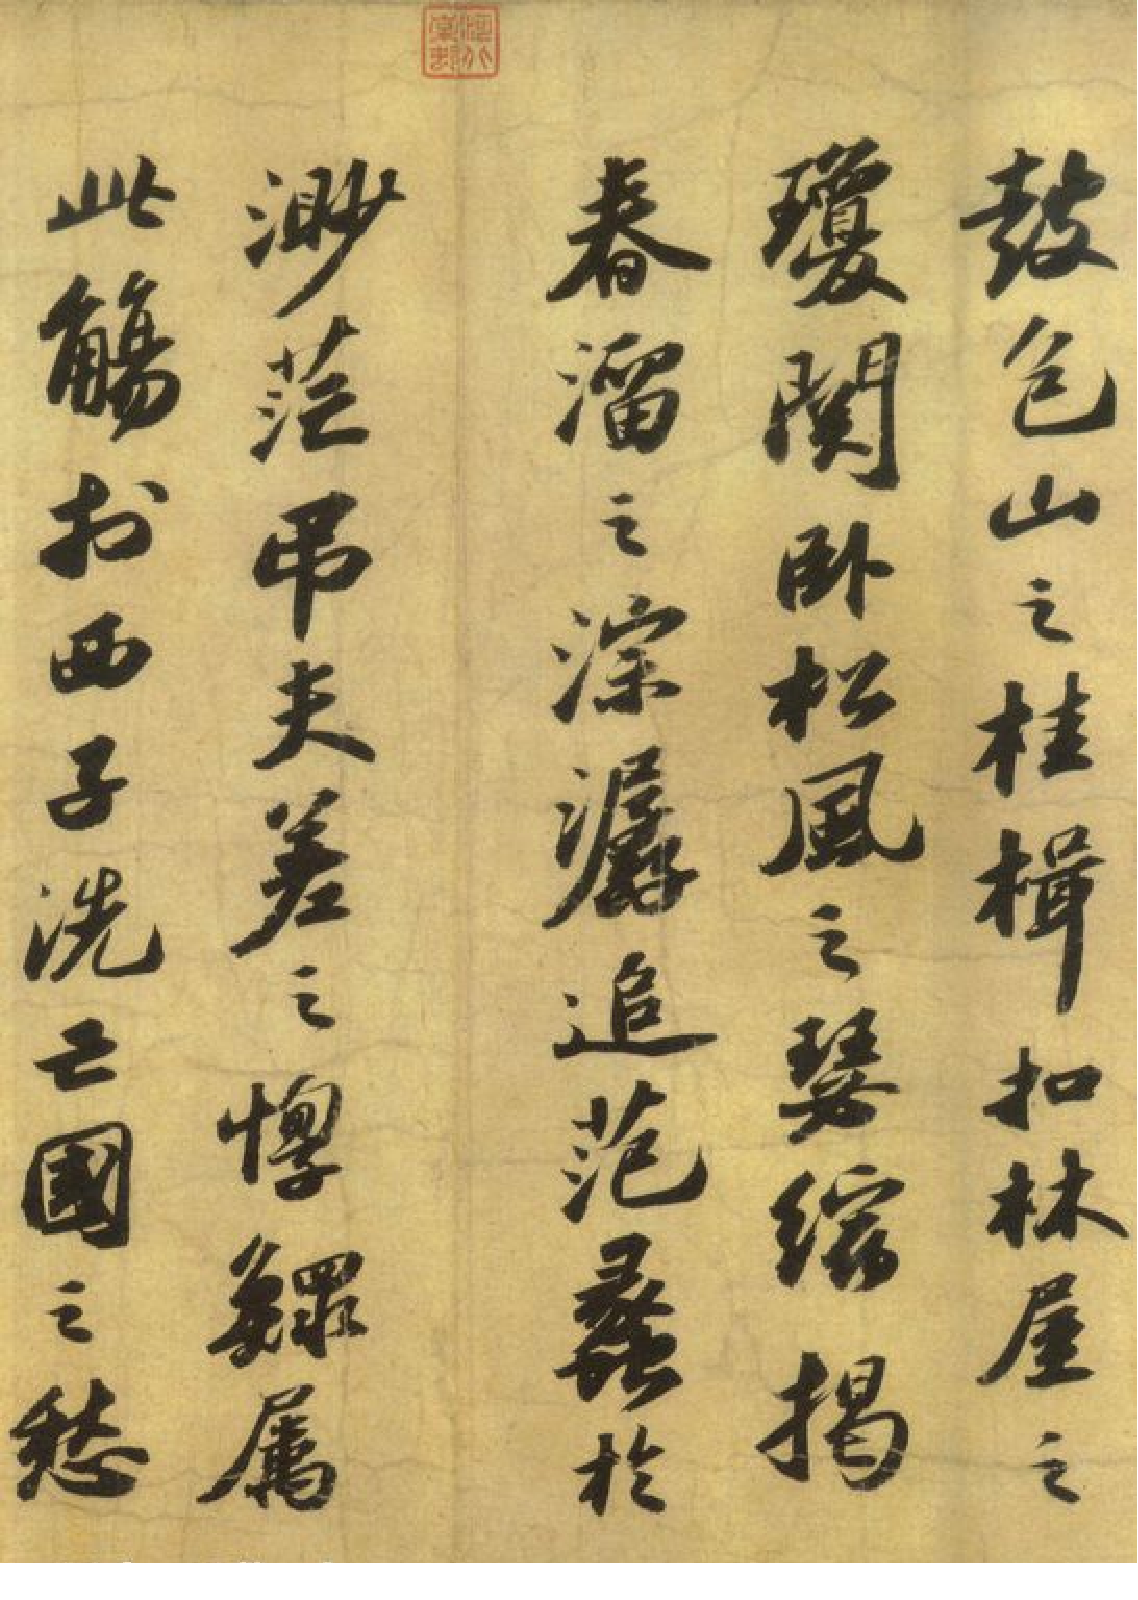 鼓包山之桂楫扣林屋之
瓊關卧松風之瑟縮揭
春溜之淙潺追范蠡於
渺茫吊夫差之惸鰥属
此觴於西子洗亡國之愁